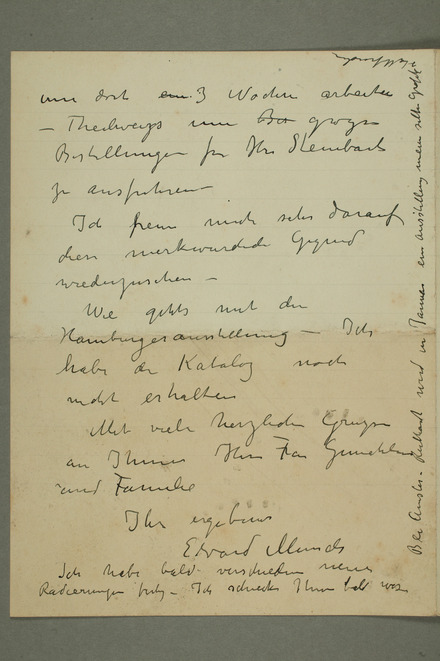 um dort ein 3 Wochen arbeiten
– Theilweise um gewisse
Bestellungen für Hrn Steinbart
zu ausführen –
Ich freue mich sehr darauf
diese merkwürdide Gegend
wiederzusehen –
Wie gehts mit der
Hamburgerausstellung – Ich
habe den Katalog noch
nicht erhalten
Mit viele herzlichen Grüssen
an Ihnen Ihre Frau
und Familie
Ihr ergebener
Edvard Munch
Ich habe bald verschiedene neue
Radierungen fertig – Ich schicke Ihnen bald was
Bei Amsler-Ruthardt wird in Januar ein Ausstellung meine